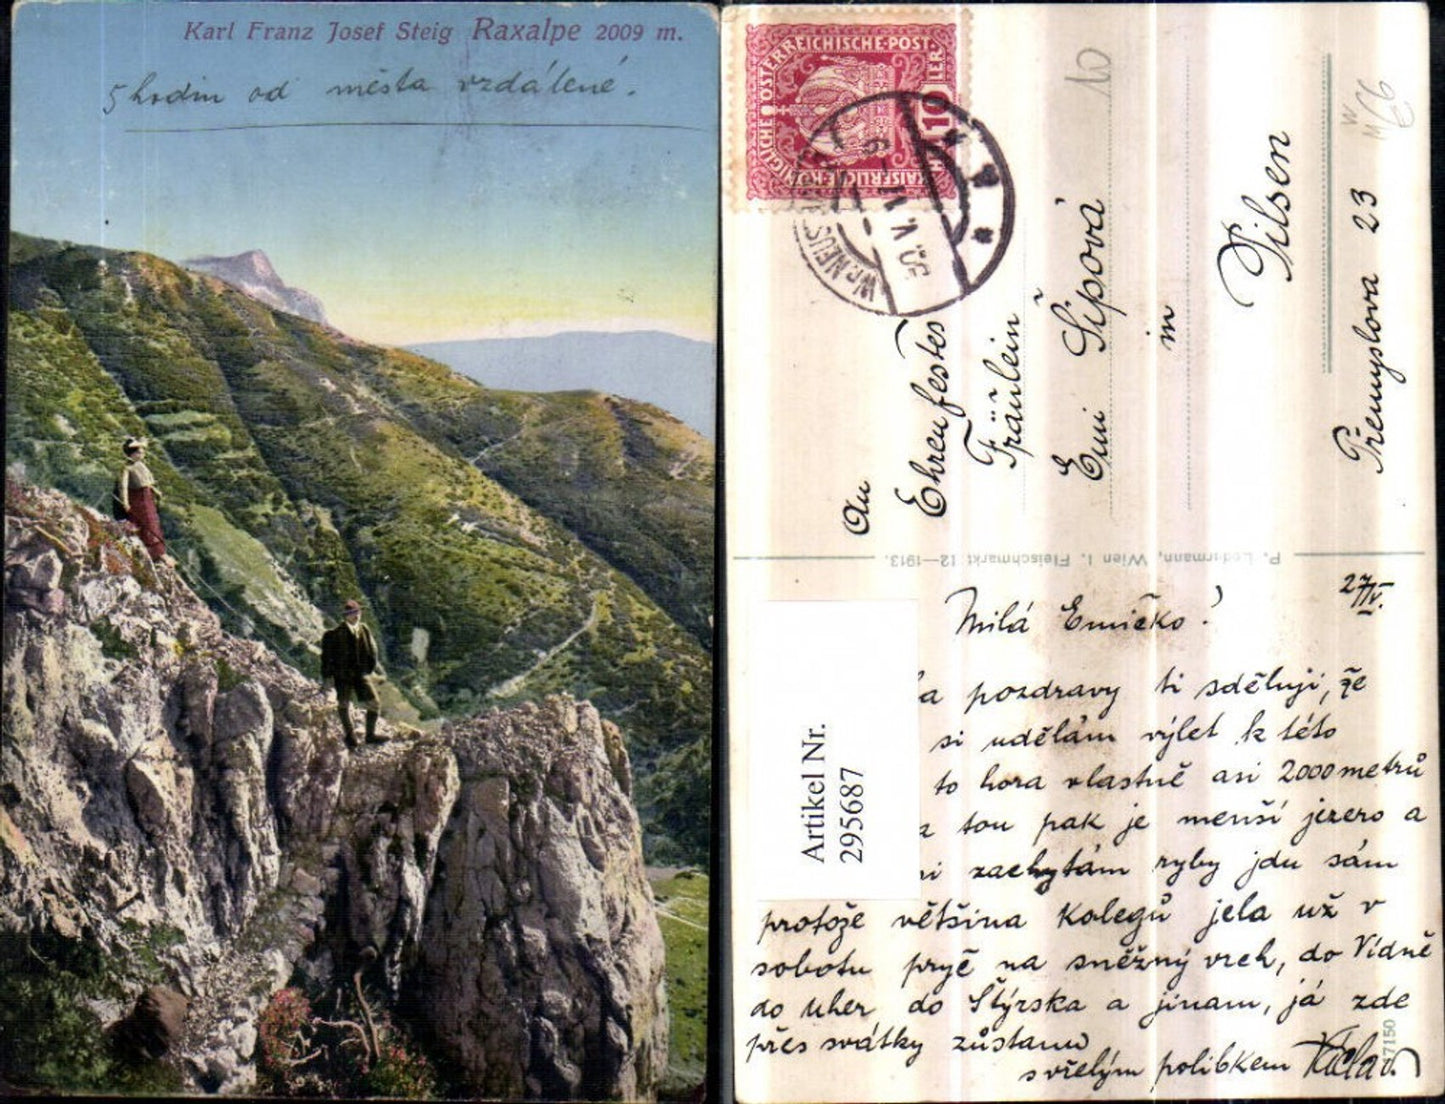 Karl Franz Josef Steig Raxalpe 2009 m.
5 hodin od města vzdálené.
ÖSTERREICHISCHE·POST
KAISERLICHE·KÖNIGLICHE
10
HELLER
Wr. NEUS
An
Ehrenfestes
Fräulein
Emi Šípová
in
Pilsen
Přemyslova 23
10
P. Ledermann, Wien I. Fleischmarkt 12—1913.
27/IV.
Milá Emičko!
pozdravy ti sděluji, že
si udělám výlet k této
to hora vlastně asi 2000 metrů
tou pak je menší jezero a
zachytám ryby jdu sám
protože většina kolegů jela už v
sobotu pryč na sněžný vrch, do Vídně
do uher do Štýrska a jinam, já zde
přes svátky zůstanu
s vřelým polibkem
Artikel Nr.
295687
17150